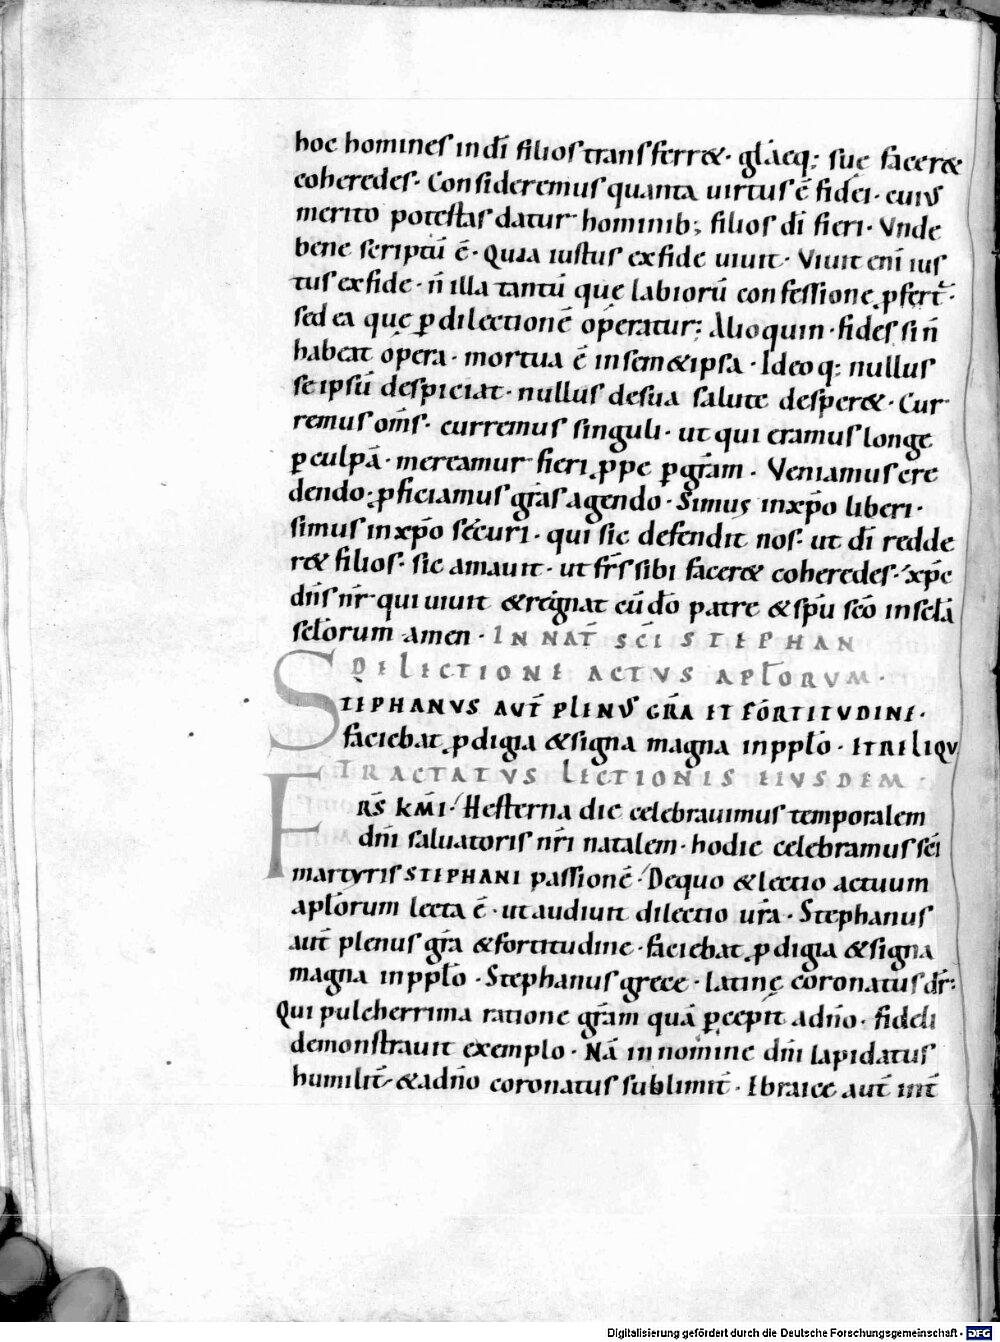 hoc homines in dī filios transferr&. gl̄aeq; sue facer&
coheredes. Consideremus quanta uirtus ē fidei. cuius
merito potestas datur hominib; filios dī fieri. Vnde
bene scriptū ē. Quia iustus ex fide uiuit. Viuit enī ius
tus ex fide. n̄ illa tantū que labiorū confessione ꝓfert̄.
sed ea que ꝑ dilectionē operatur; Alioquin. fides si n̄
habeat opera. mortua ē in sem&ipsa. Ideoq; nullus
se ipsū despiciat. nullus de sua salute desper&. Cur
remus om̄s. curremus singuli. ut qui eramus longe
ꝑ culpā. mereamur fieri ꝓpe ꝑ gr̄am. Veniamus cre
dendo. ꝓficiamus gr̄as agendo. Simus in xp̄o liberi.
simus in xp̄o securi. qui sic defendit nos. ut dī redde
r& filios. sic amauit. ut fr̄s sibi facer& coheredes. xp̄c
dn̄s nr̄ qui uiuit & regnat cū dō patre & sp̄u sc̄o in sc̄lā
sc̄lorum amen. IN NAT̄ SC̄I STEPHAN
DE LECTIONE ACTVS APL̄ORVM.
STEPHANVS AVT̄ PLENVS GR̄A ET FORTITVDINE.
faciebat ꝓdigia & signa magna in ppl̄o. ET RELIQV
TRACTATVS LECTIONIS EIVSDEM.
FRS̄ KM̄I. Hesterna die celebrauimus temporalem
dn̄i saluatoris nr̄i natalem. hodie celebramus sc̄i
martyris STEPHANI passionē. De quo & lectio actuum
apl̄orum lecta ē. ut audiuit dilectio ur̄a. Stephanus
aut̄ plenus gr̄a & fortitudine. faciebat ꝓdigia & signa
magna in ppl̄o. Stephanus grece. latine coronatus dr̄.
Qui pulcherrima ratione gr̄am quā ꝑcepit a dn̄o. fideli
demonstrauit exemplo. Nā in nomine dn̄i lapidatus
humilit̄. & a dn̄o coronatus sublimit̄. Ebraice aut̄ int̄
Digitalisierung gefördert durch die Deutsche Forschungsgemeinschaft - DFG